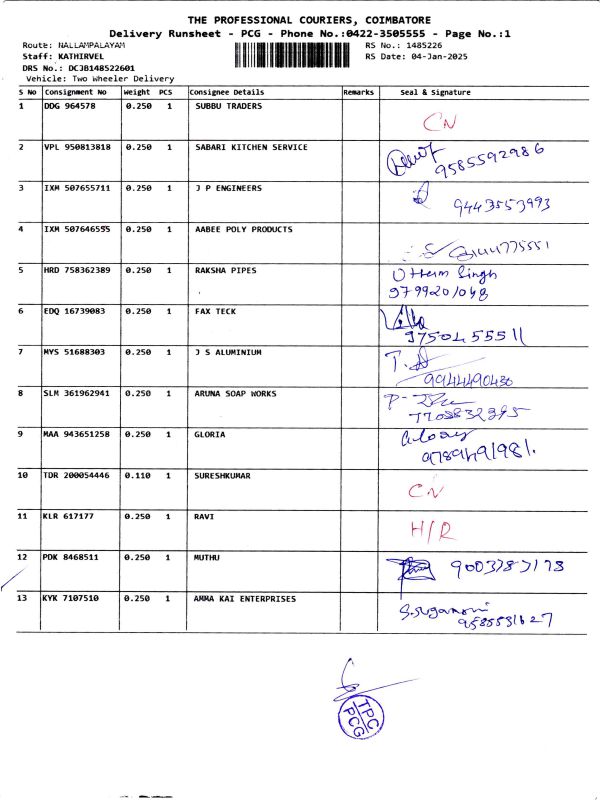 THE PROFESSIONAL COURIERS, COIMBATORE
Delivery Runsheet - PCG - Phone No.:0422-3505555 - Page No.:1
Route: NALLAMPALAYAM RS No.: 1485226
Staff: KATHIRVEL RS Date: 04-Jan-2025
DRS No.: DCJB148522601
Vehicle: Two Wheeler Delivery
S No Consignment No Weight PCS Consignee Details Remarks Seal & Signature
1 DDG 964578 0.250 1 SUBBU TRADERS CN
2 VPL 950813818 0.250 1 SABARI KITCHEN SERVICE
9585592986
3 IXM 507655711 0.250 1 J P ENGINEERS
9443553993
4 IXM 507646555 0.250 1 AABEE POLY PRODUCTS
5 HRD 758362389 0.250 1 RAKSHA PIPES Uttam Singh
9799201048
6 EDQ 16739083 0.250 1 FAX TECK
9750455511
7 MYS 51688303 0.250 1 J S ALUMINIUM
9944490430
8 SLM 361961941 0.250 1 ARUNA SOAP WORKS
7708832395
9 MAA 943651258 0.250 1 GLORIA
9789491981.
10 TDR 200054446 0.110 1 SURESHKUMAR CN
11 KLR 617177 0.250 1 RAVI H/R
12 PDK 8468511 0.250 1 MUTHU 9003783173
13 KYK 7107510 0.250 1 AMMA KAI ENTERPRISES
9585531627
TPC
PCG